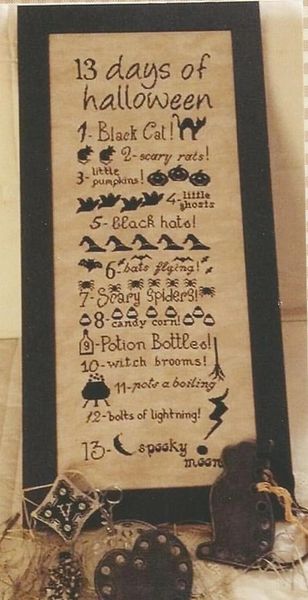 13 days of
halloween
1- Black Cat!
2- scary rats!
3- little
pumpkins!
4- little
ghosts
5- Black hats!
6- bats flying!
7- Scary Spiders!
8- candy corn!
9- Potion Bottles!
10- witch brooms!
11- pots a boiling
12- bolts of lightning!
13- spooky
moon